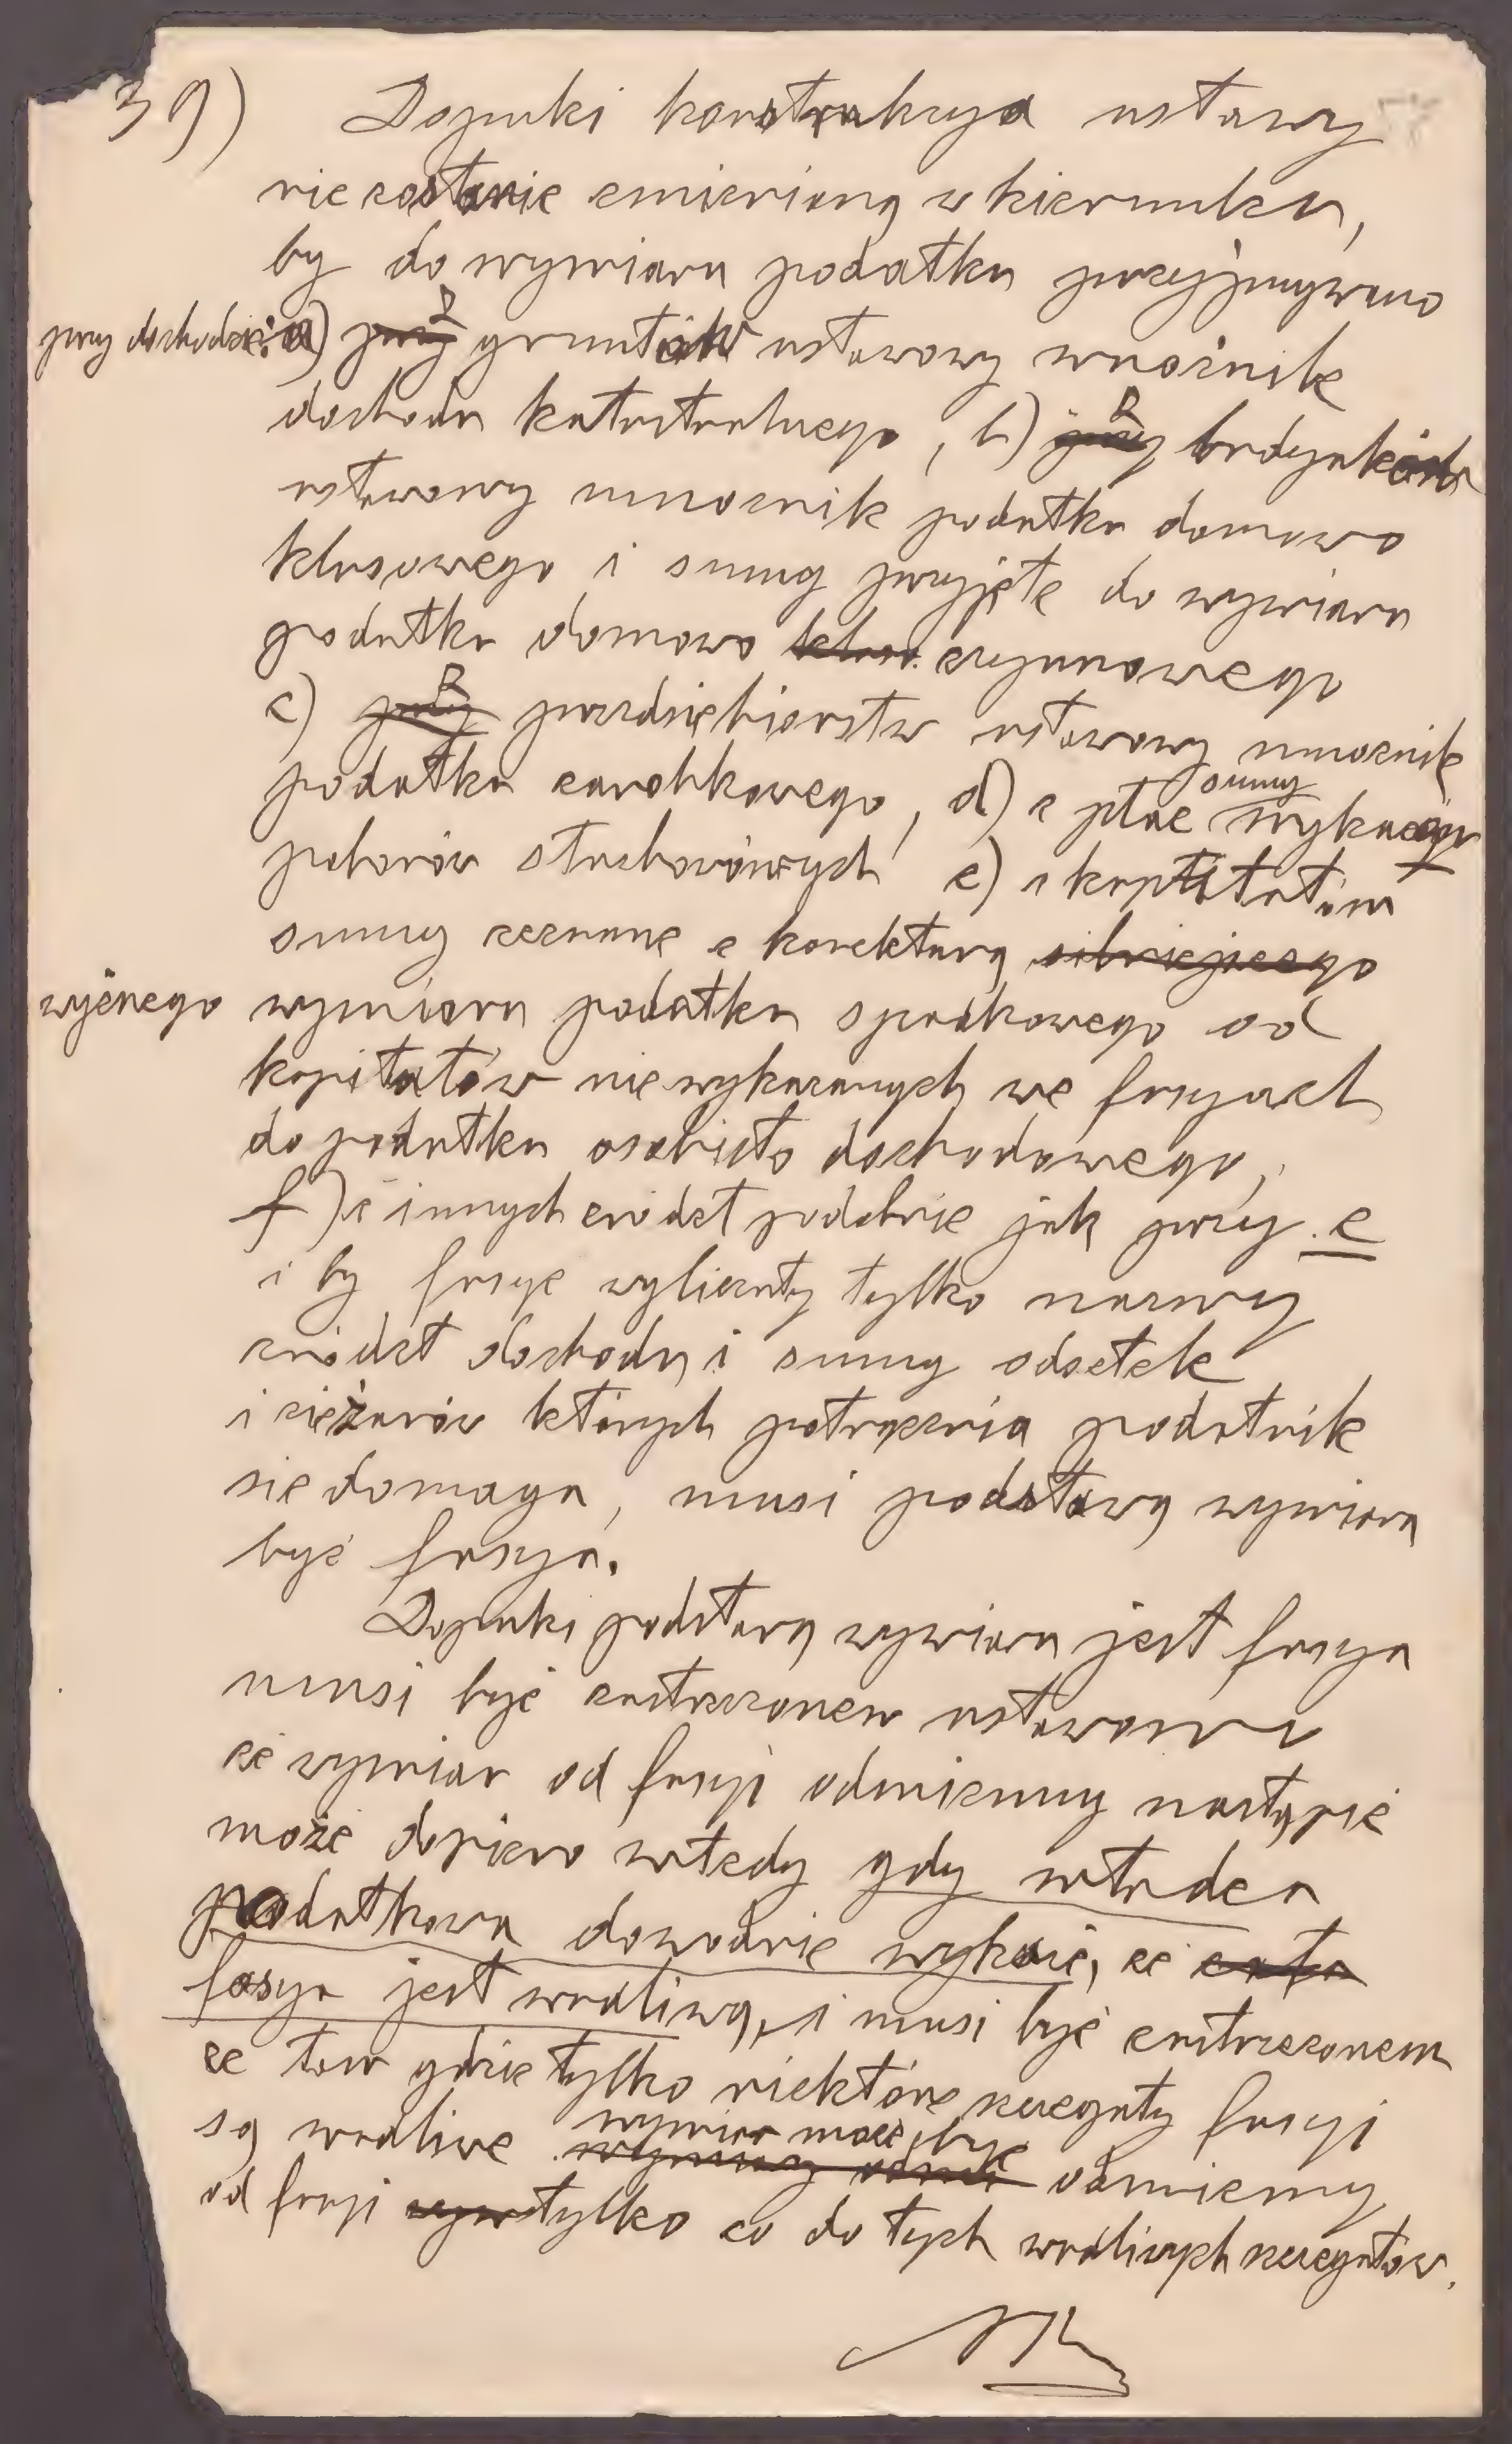 39) Dopuki konstrukcya ustawy
nie zostanie zmienioną w kierunku,
by do wymiaru podatku przyjmywano
przy dochodzie: a) ~~przy~~ z gruntów ustawowy mnożnik
dochodu katastralnego, b) ~~przy~~ z budynków
ustawowy mnożnik podatku domowo
klasowego i sumy przyjęte do wymiaru
podatku domowo ~~klas.~~ czynszowego
c) ~~przy~~ z przedsiębiorstw ustawowy mnożnik
podatku zarobkowego, d) z płac sumy wykazów
poborów służbowych e) z kapitałów
sumy zeznane z korekturą ~~silniejszego~~
wyższego wymiaru podatku spadkowego od
kapitałów nie wykazanych we fasyach
do podatku osobisto dochodowego,
f) z innych źródeł podobnie jak przy e
i by fasye wyliczały tylko nazwy
źródeł dochodu i sumy odsetek
i ciężarów których potrącenia podatnik
się domaga, musi podstawą wymiaru
być fasya.
Dopuki podstawą wymiaru jest fasya
musi być zastrzeżonem ustawowo
że wymiar od fasyi odmienny nastąpić
może dopiero wtedy gdy władza
podatkowa dowodnie wykaże, że ~~cała~~
fasya jest wadliwą, i musi być zastrzeżonem
że tam gdzie tylko niektóre szczegóły fasyi
są wadliwe wymiar może być odmienny
od fasyi tylko co do tych wadliwych szczegółów.